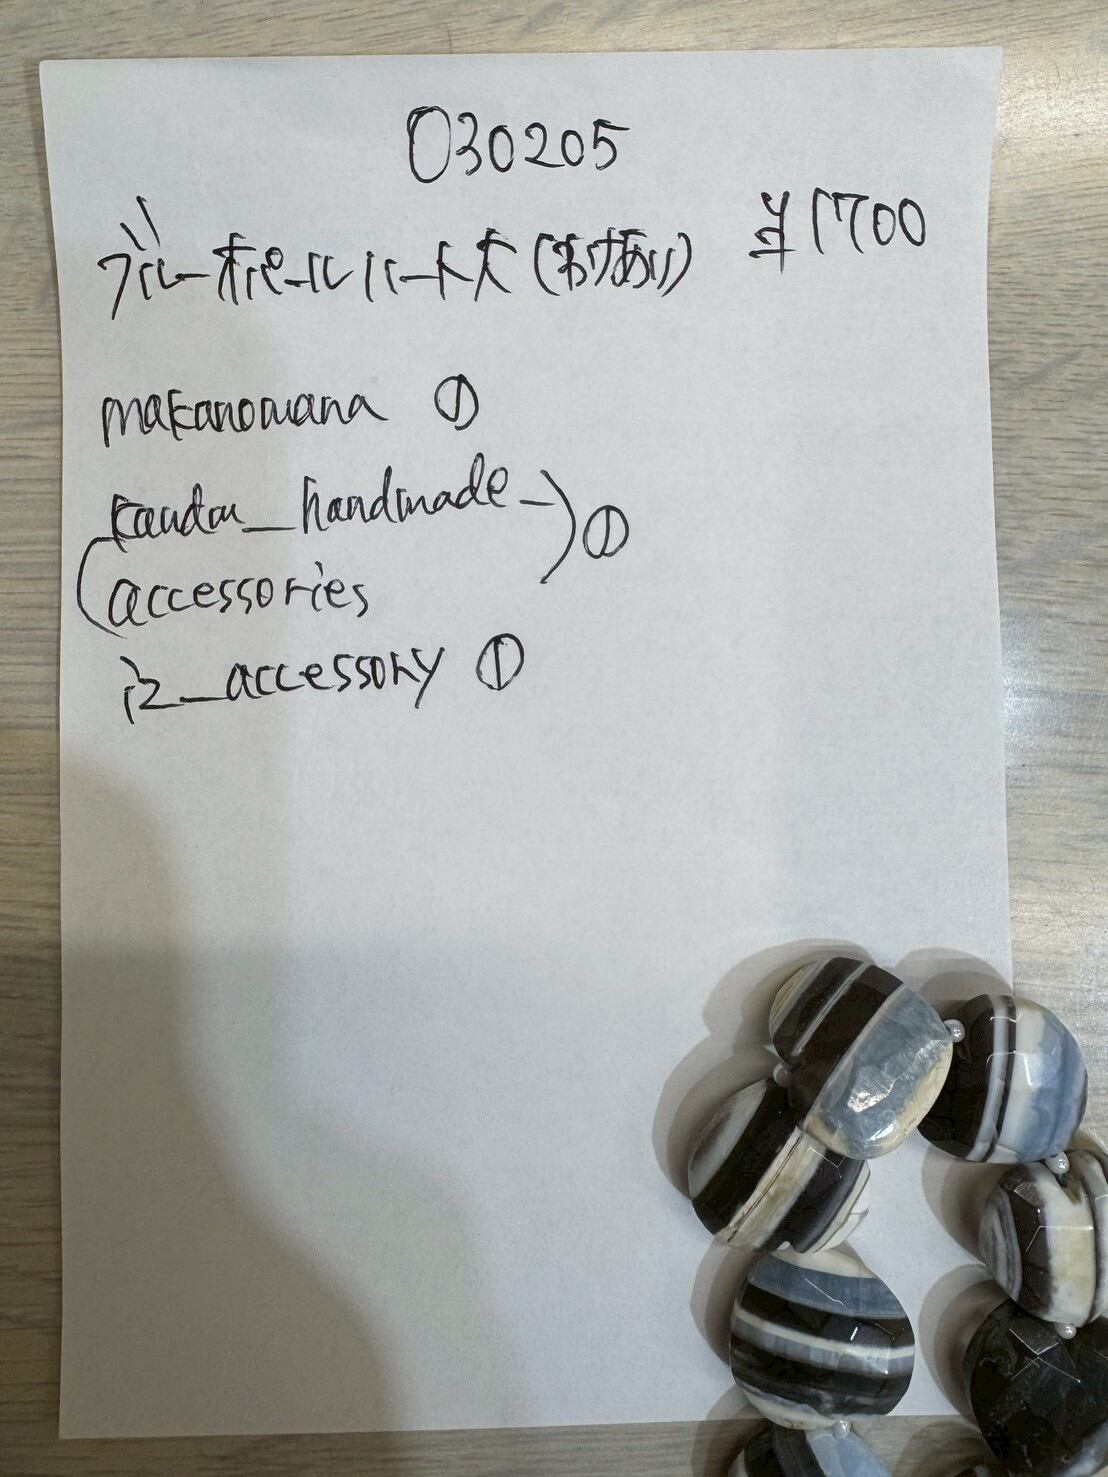 030205
ブルーオパールハート大(わけあり) ¥1700
makanomana ①
kandm_handmade_ ①
accessories
iz_accessory ①